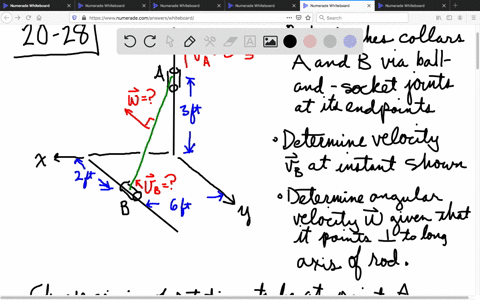 Numerade Whiteboard
Numerade Whiteboard
Numerade Whiteboard
Numerade Whiteboard
Numerade Whiteboard
Numerade Whiteboard
https://www.numerade.com/answers/whiteboard/
20-28
A
A and B via ball-
and-socket joints
at its endpoints
ω⃗=?
3ft
x
2ft
v⃗_B=?
B
6ft
y
• Determine velocity
v⃗_B at instant shown
• Determine angular
velocity ω⃗ given that
it points ⊥ to long
axis of rod.